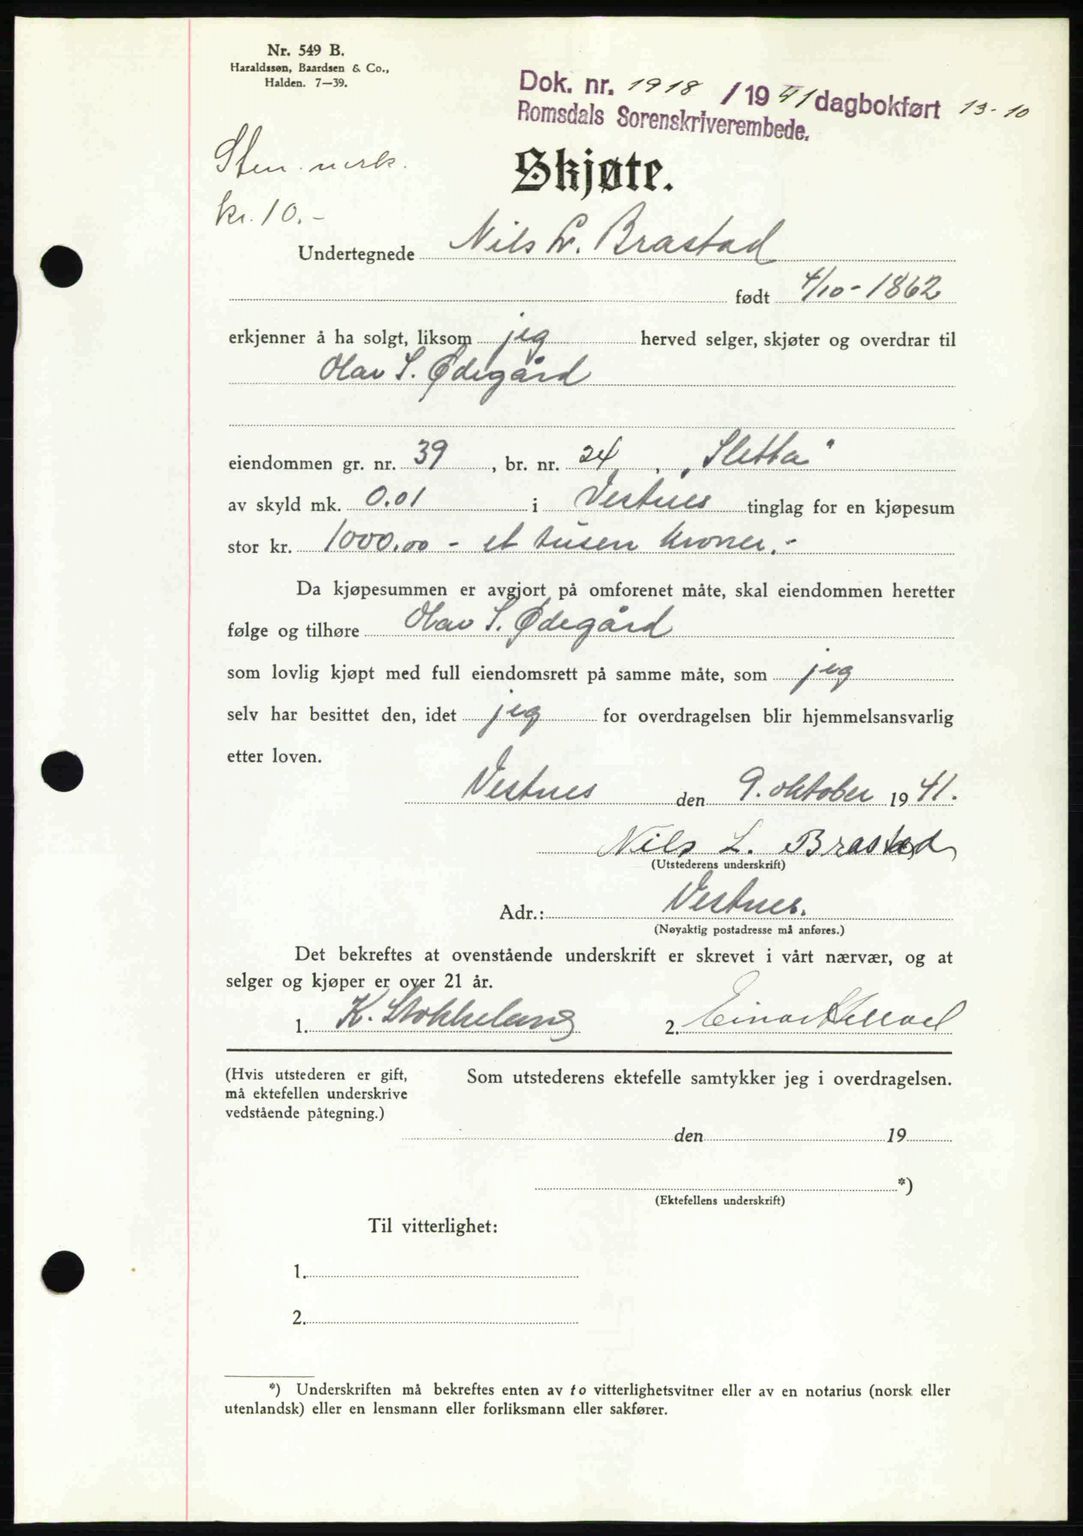 Nr. 549 B.
Haraldssøn, Baardsen & Co.,
Halden. 7—39.
Dok. nr. 1918 / 1941 dagbokført 13-10
Romsdals Sorenskriverembede.
Stem. merk.
kr. 10.-
Skjøte.
Undertegnede Nils L. Brastad
født 4/10-1862
erkjenner å ha solgt, liksom jeg herved selger, skjøter og overdrar til
Olav S. Ødegård
eiendommen gr. nr. 39, br. nr. 24, „Sletta"
av skyld mk. 0.01 i Vestnes tinglag for en kjøpesum
stor kr. 1000.00 - et tusen kroner.-
Da kjøpesummen er avgjort på omforenet måte, skal eiendommen heretter
følge og tilhøre Olav S. Ødegård
som lovlig kjøpt med full eiendomsrett på samme måte, som jeg
selv har besittet den, idet jeg for overdragelsen blir hjemmelsansvarlig
etter loven.
Vestnes den 9. oktober 1941.
Nils L. Brastad
(Utstederens underskrift)
Adr.: Vestnes.
(Nøyaktig postadresse må anføres.)
Det bekreftes at ovenstående underskrift er skrevet i vårt nærvær, og at
selger og kjøper er over 21 år.
1. K. Stokkeland 2. Einar
(Hvis utstederen er gift,
må ektefellen underskrive
vedstående påtegning.)
Som utstederens ektefelle samtykker jeg i overdragelsen.
den 19
*)
(Ektefellens underskrift)
Til vitterlighet:
1.
2.
*) Underskriften må bekreftes enten av to vitterlighetsvitner eller av en notarius (norsk eller
utenlandsk) eller en lensmann eller forliksmann eller sakfører.